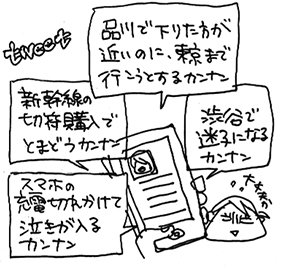 tweet
品川で下りた方が
近いのに、東京まで
行こうとするカンナン
新幹線の
切符購入で
とまどうカンナン
渋谷で
迷子になる
カンナン
スマホの
充電切れかけて
泣きが入る
カンナン